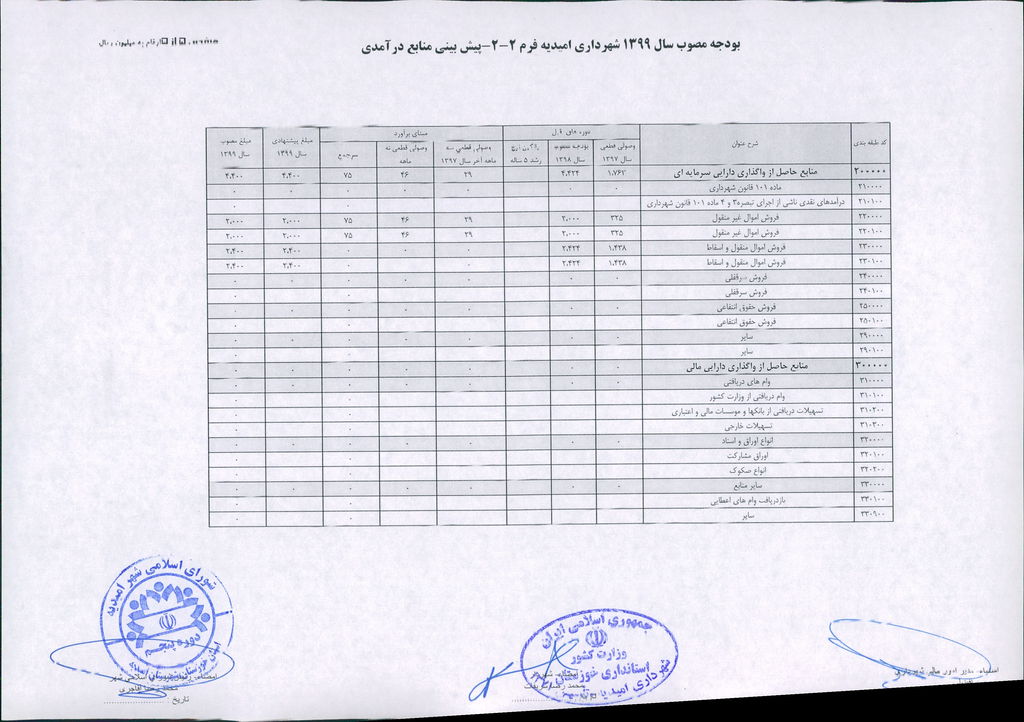 بودجه مصوب سال ۱۳۹۹ شهرداری امیدیه فرم ۲-۲-پیش بینی منابع درآمدی
ارقام به میلیون ریال
کد طبقه بندی شرح عنوان دوره های مبنای برآورد مبلغ پیشنهادی سال ۱۳۹۹ مبلغ مصوب سال ۱۳۹۹
وصولی قطعی سال ۱۳۹۷ بودجه مصوب سال ۱۳۹۸ رشد ۵ ساله وصولی قطعی سه ماهه آخر سال ۱۳۹۷ وصولی قطعی نه ماهه سرجمع
۲۰۰۰۰۰ منابع حاصل از واگذاری دارایی سرمایه ای ۱،۷۶۳ ۴،۴۲۴ ۲۹ ۴۶ ۷۵ ۴،۴۰۰ ۴،۴۰۰
۲۱۰۰۰۰ ماده ۱۰۱ قانون شهرداری ۰ ۰ ۰ ۰ ۰ ۰ ۰
۲۱۰۱۰۰ درآمدهای نقدی ناشی از اجرای تبصره۳ و ۴ ماده ۱۰۱ قانون شهرداری ۰ ۰
۲۲۰۰۰۰ فروش اموال غیر منقول ۳۲۵ ۲،۰۰۰ ۲۹ ۴۶ ۷۵ ۲،۰۰۰ ۲،۰۰۰
۲۲۰۱۰۰ فروش اموال غیر منقول ۳۲۵ ۲،۰۰۰ ۲۹ ۴۶ ۷۵ ۲،۰۰۰ ۲،۰۰۰
۲۳۰۰۰۰ فروش اموال منقول و اسقاط ۱،۴۳۸ ۲،۴۲۴ ۰ ۰ ۰ ۲،۴۰۰ ۲،۴۰۰
۲۳۰۱۰۰ فروش اموال منقول و اسقاط ۱،۴۳۸ ۲،۴۲۴ ۰ ۰ ۲،۴۰۰ ۲،۴۰۰
۲۴۰۰۰۰ فروش سرقفلی ۰ ۰ ۰ ۰ ۰ ۰ ۰
۲۴۰۱۰۰ فروش سرقفلی ۰ ۰
۲۵۰۰۰۰ فروش حقوق انتفاعی ۰ ۰ ۰ ۰ ۰ ۰ ۰
۲۵۰۱۰۰ فروش حقوق انتفاعی ۰ ۰
۲۹۰۰۰۰ سایر ۰ ۰ ۰ ۰ ۰ ۰ ۰
۲۹۰۱۰۰ سایر ۰ ۰
۳۰۰۰۰۰ منابع حاصل از واگذاری دارایی مالی ۰ ۰ ۰ ۰ ۰ ۰ ۰
۳۱۰۰۰۰ وام های دریافتی ۰ ۰ ۰ ۰ ۰ ۰ ۰
۳۱۰۱۰۰ وام دریافتی از وزارت کشور ۰ ۰
۳۱۰۲۰۰ تسهیلات دریافتی از بانکها و موسسات مالی و اعتباری ۰ ۰
۳۱۰۳۰۰ تسهیلات خارجی ۰ ۰
۳۲۰۰۰۰ انواع اوراق و اسناد ۰ ۰ ۰ ۰ ۰ ۰ ۰
۳۲۰۱۰۰ اوراق مشارکت ۰ ۰
۳۲۰۲۰۰ انواع صکوک ۰ ۰
۳۳۰۰۰۰ سایر منابع ۰ ۰ ۰ ۰ ۰ ۰ ۰
۳۳۰۱۰۰ بازدریافت وام های اعطایی ۰ ۰
۳۳۰۹۰۰ سایر ۰ ۰
شورای اسلامی شهر امیدیه
دوره پنجم
جمهوری اسلامی ایران
وزارت کشور
استانداری خوزستان
شهرداری امیدیه
امضاء مدیر امور مالی شهرداری
تاریخ